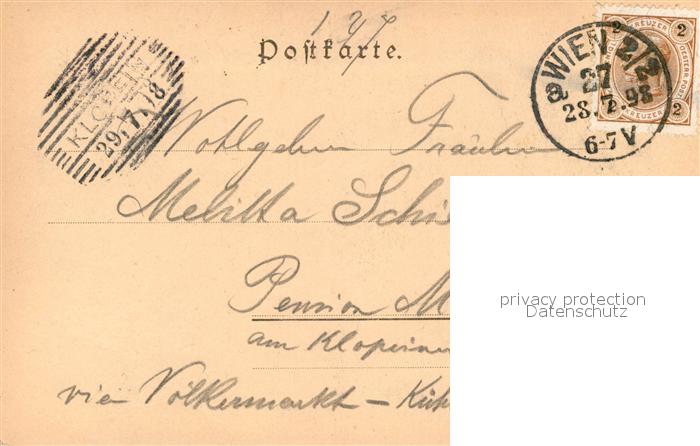 127
Postkarte.
KLOPEIN
29.7.98
WIEN 2/2
27
28.7.98
6-7V
2
KREUZER
2
2
KREUZER
Wohlgebor Fräulein
Melitta Schi
Pension M
am Klopeiner
via Völkermarkt – Küh
privacy protection
Datenschutz